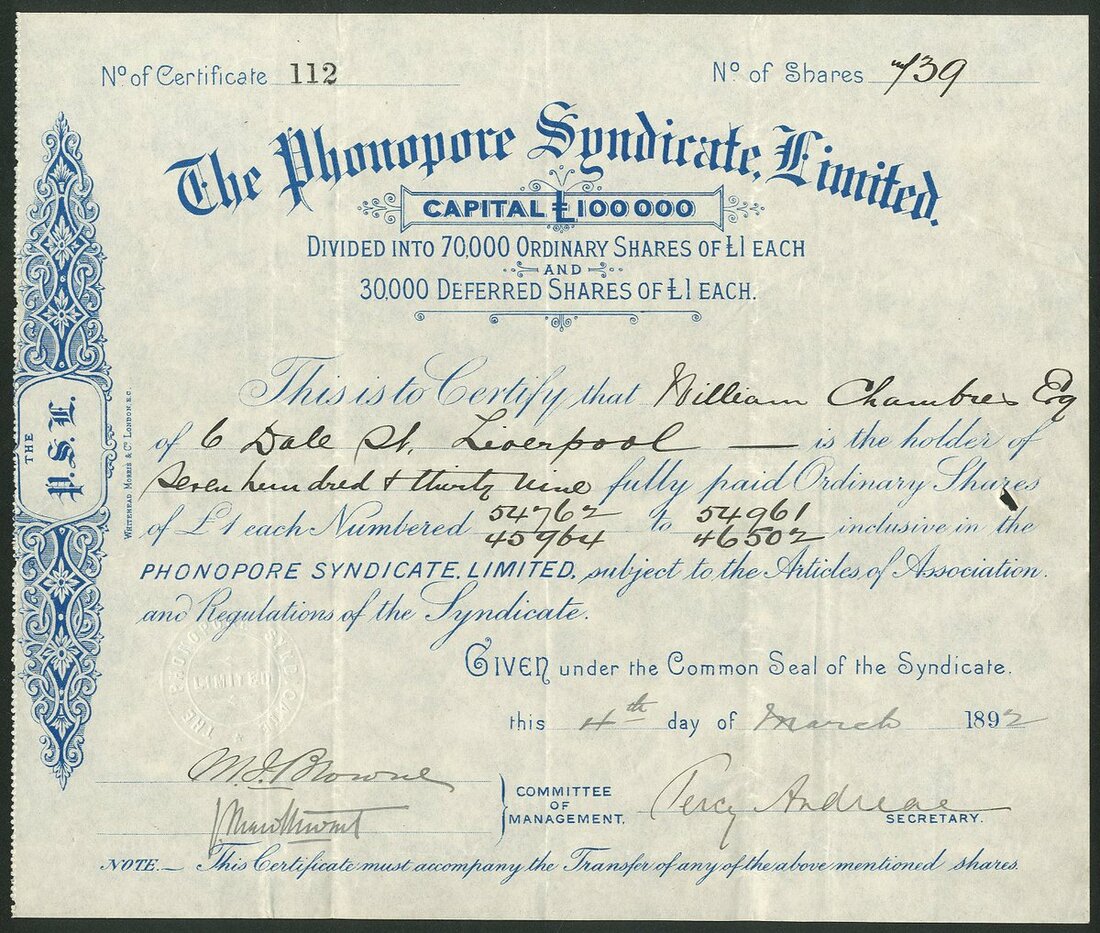 Nº of Certificate 112
Nº of Shares 739
The Phonopore Syndicate, Limited.
CAPITAL £100000
DIVIDED INTO 70,000 ORDINARY SHARES OF £1 EACH
AND
30,000 DEFERRED SHARES OF £1 EACH.
This is to Certify that William Chambres Esq
of 6 Dale St. Liverpool — is the holder of
Seven hundred & thirty nine fully paid Ordinary Shares
of £1 each Numbered 54762 to 54961 inclusive in the
45964 46502
PHONOPORE SYNDICATE, LIMITED, subject to the Articles of Association
and Regulations of the Syndicate.
GIVEN under the Common Seal of the Syndicate.
this 4th day of March 1892
M. J. Browne
COMMITTEE
OF
MANAGEMENT.
Percy Andreae
SECRETARY.
NOTE.— This Certificate must accompany the Transfer of any of the above mentioned shares.
THE
P.S.L.
WHITEHEAD MORRIS & Cº LONDON E.C.
THE PHONOPORE SYNDICATE
LIMITED